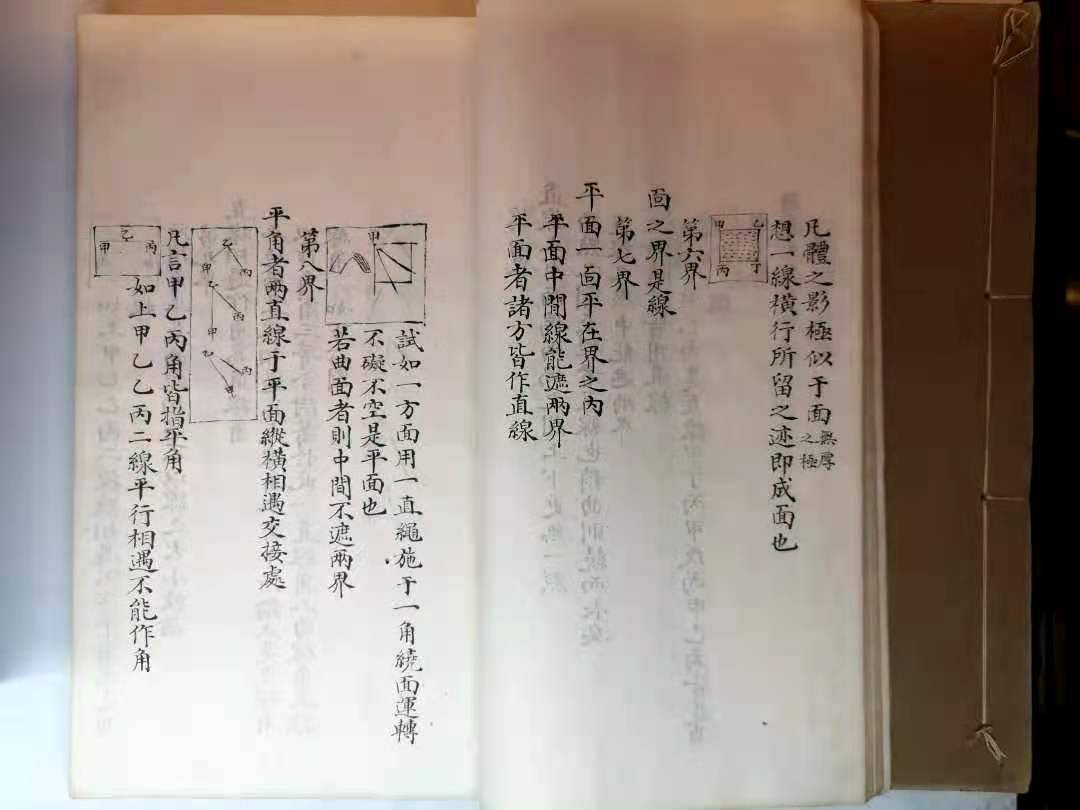 凡體之影極似于面無厚之極
想一線橫行所留之迹即成面也
甲乙丙丁
第六界
面之界是線
第七界
平面一面平在界之內
平面中間線能遮兩界
平面者諸方皆作直線
試如一方面用一直繩施于一角繞面運轉
不礙不空是平面也
若曲面者則中間不遮兩界
甲
第八界
平角者兩直線于平面縱橫相遇交接處
甲乙丙
甲乙丙
甲乙丙
凡言甲乙丙角皆指平角
甲乙丙
如上甲乙乙丙二線平行相遇不能作角